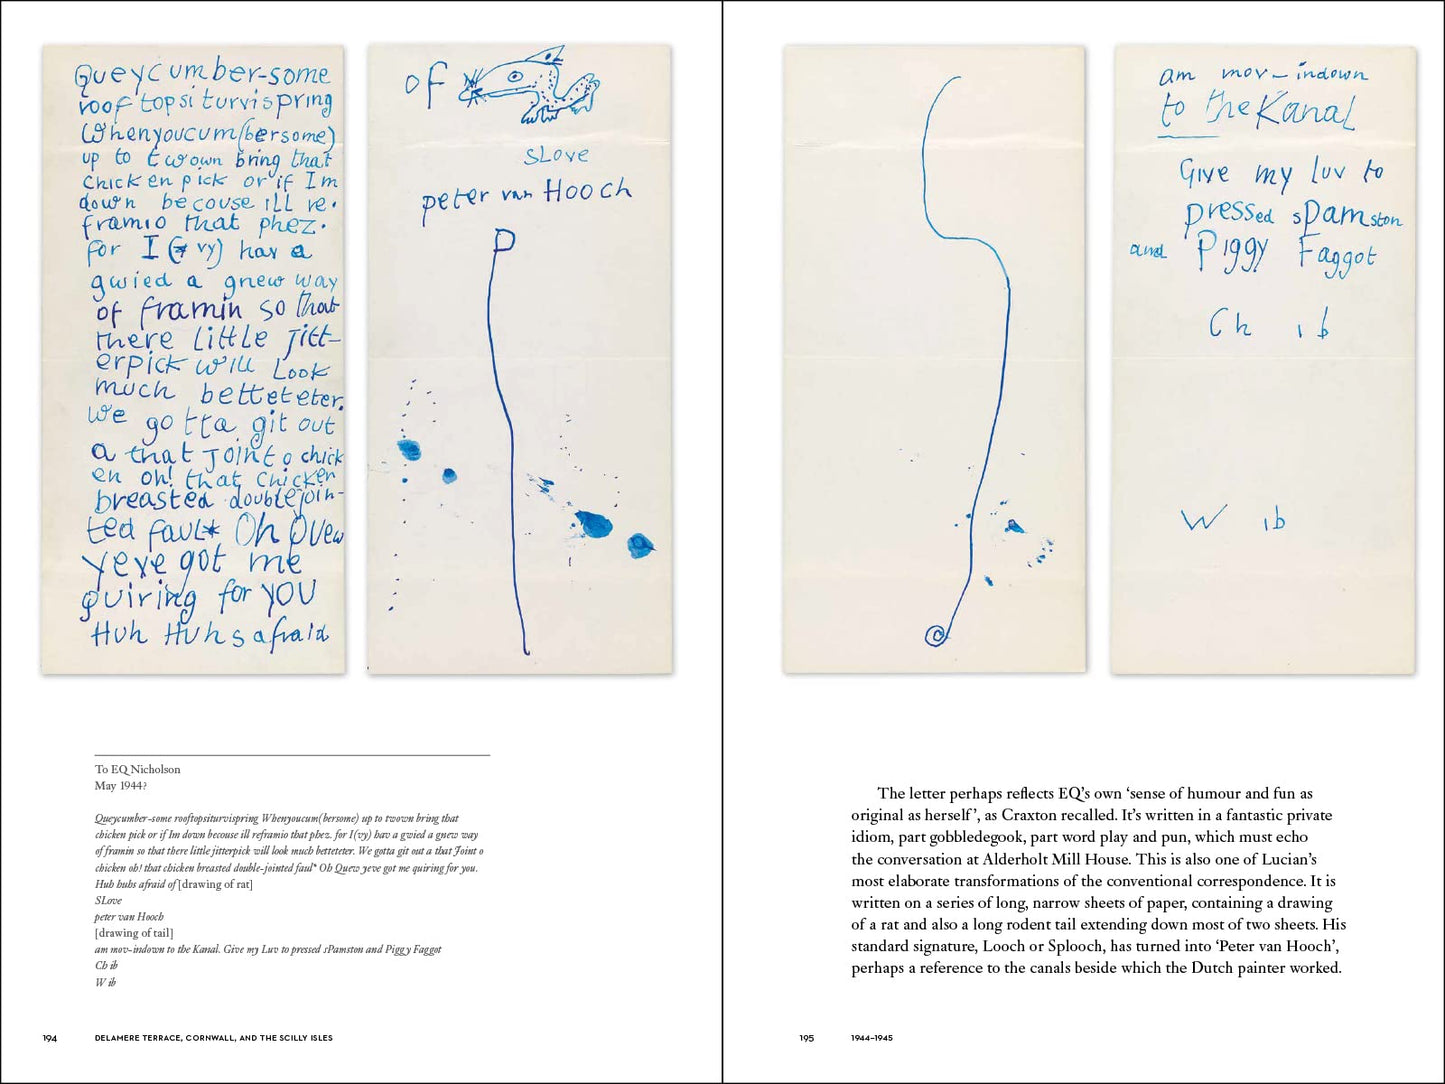 Queycumber-some
rooftopsiturvispring
Whenyoucum(bersome)
up to twown bring that
chicken pick or if Im
down becouse ill re.
framio that phez.
for I (vy) hav a
gwied a gnew way
of framin so that
there little Jitt-
erpick will Look
much betteteter.
We gotta git out
a that Joint o chick
en oh! that chicken
breasted doublejoin-
ted faul* Oh Quew
yeve got me
quiring for you
Huh Huhs afraid
of
SLove
peter van Hooch
am mov-indown
to the Kanal
Give my luv to
pressed sPamston
and Piggy Faggot
Ch ib
W ib
To EQ Nicholson
May 1944?
Queycumber-some rooftopsiturvispring Whenyoucum(bersome) up to twown bring that
chicken pick or if Im down becouse ill reframio that phez. for I(vy) hav a gwied a gnew way
of framin so that there little jitterpick will look much betteteter. We gotta git out a that Joint o
chicken oh! that chicken breasted double-jointed faul* Oh Quew yeve got me quiring for you.
Huh huhs afraid of [drawing of rat]
SLove
peter van Hooch
[drawing of tail]
am mov-indown to the Kanal. Give my Luv to pressed sPamston and Piggy Faggot
Ch ib
W ib
194 DELAMERE TERRACE, CORNWALL, AND THE SCILLY ISLES
The letter perhaps reflects EQ's own ‘sense of humour and fun as
original as herself’, as Craxton recalled. It's written in a fantastic private
idiom, part gobbledegook, part word play and pun, which must echo
the conversation at Alderholt Mill House. This is also one of Lucian's
most elaborate transformations of the conventional correspondence. It is
written on a series of long, narrow sheets of paper, containing a drawing
of a rat and also a long rodent tail extending down most of two sheets. His
standard signature, Looch or Splooch, has turned into ‘Peter van Hooch’,
perhaps a reference to the canals beside which the Dutch painter worked.
195 1944–1945